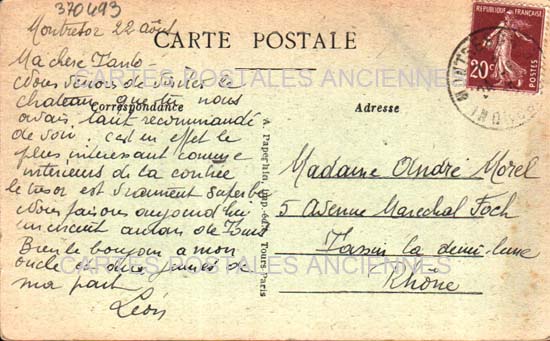 370493
Montresor 22 août
CARTE POSTALE
RÉPUBLIQUE FRANÇAISE
20c
Ma chère Tante
Nous venons de visiter le
chateau que tu nous
avais tant recommandé
de voir. c'est en effet le
plus interessant comme
interieurs de la contrée
le tresor est vraiment superbe
Nous faisons aujourd'hui
un circuit autour de Tours
Bien le bonjour a mon
oncle et deux
ma part
Léon
Correspondance
Adresse
Madame André Morel
5 Avenue Marechal Foch
Tassin la demi-lune
Rhône
A. Paperhin, Imp.-édit. Tours Paris
CARTES POSTALES ANCIENNES
CARTES POSTALES ANCIENNES